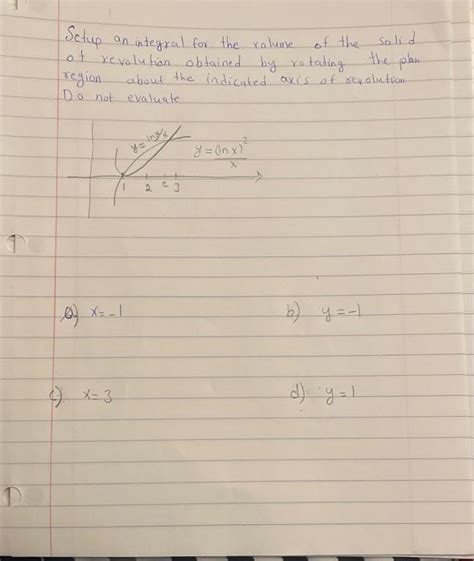 Setup an integral for the volume of the solid
of revolution obtained by rotating the plan
region about the indicated axis of revolution
Do not evaluate
y = ln x/x
y = (ln x)²/x
1 2 e 3
a) x = -1
b) y = -1
c) x = 3
d) y = 1